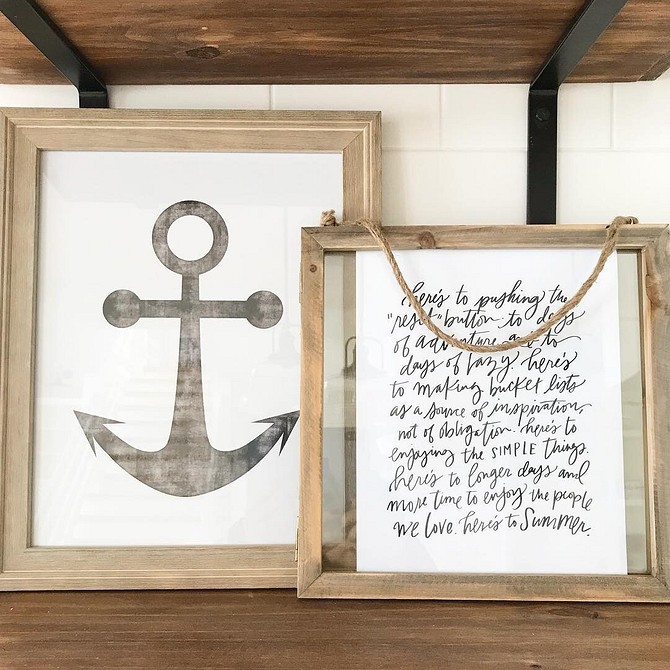 here's to pushing the
"reset" button. to days
of adventure and to
days of lazy. here's
to making bucket lists
as a source of inspiration,
not of obligation. here's to
enjoying the SIMPLE things.
here's to longer days and
more time to enjoy the people
we love. here's to Summer.